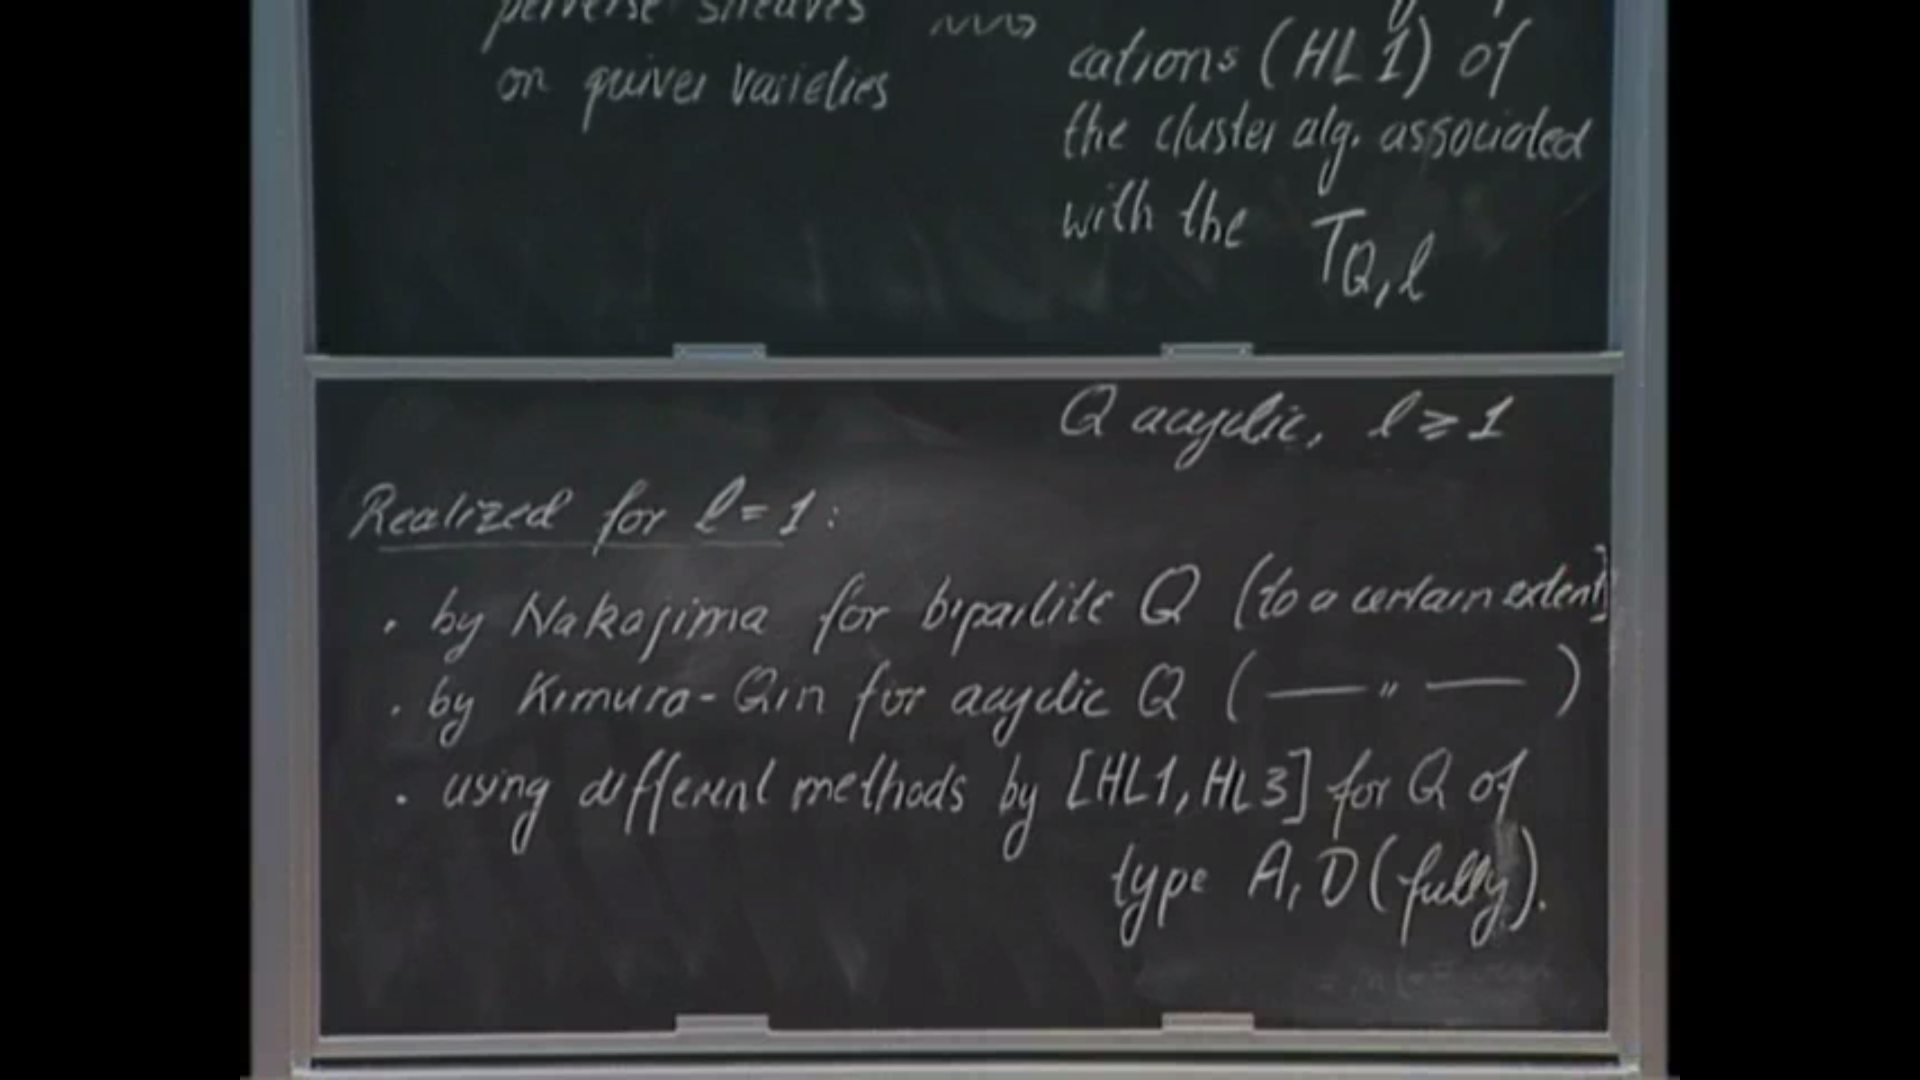 perverse sheaves
on quiver varieties
cations (HL 1) of
the cluster alg. associated
with the T_{Q,l}
Q acyclic, l ≥ 1
Realized for l = 1:
• by Nakajima for bipartite Q (to a certain extent)
• by Kimura-Qin for acyclic Q ( —— " —— )
• using different methods by [HL1, HL3] for Q of
type A, D (fully).